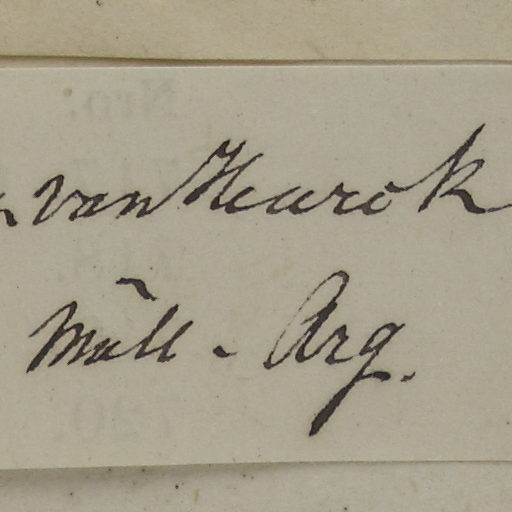 van Heurck
Müll-Arg.